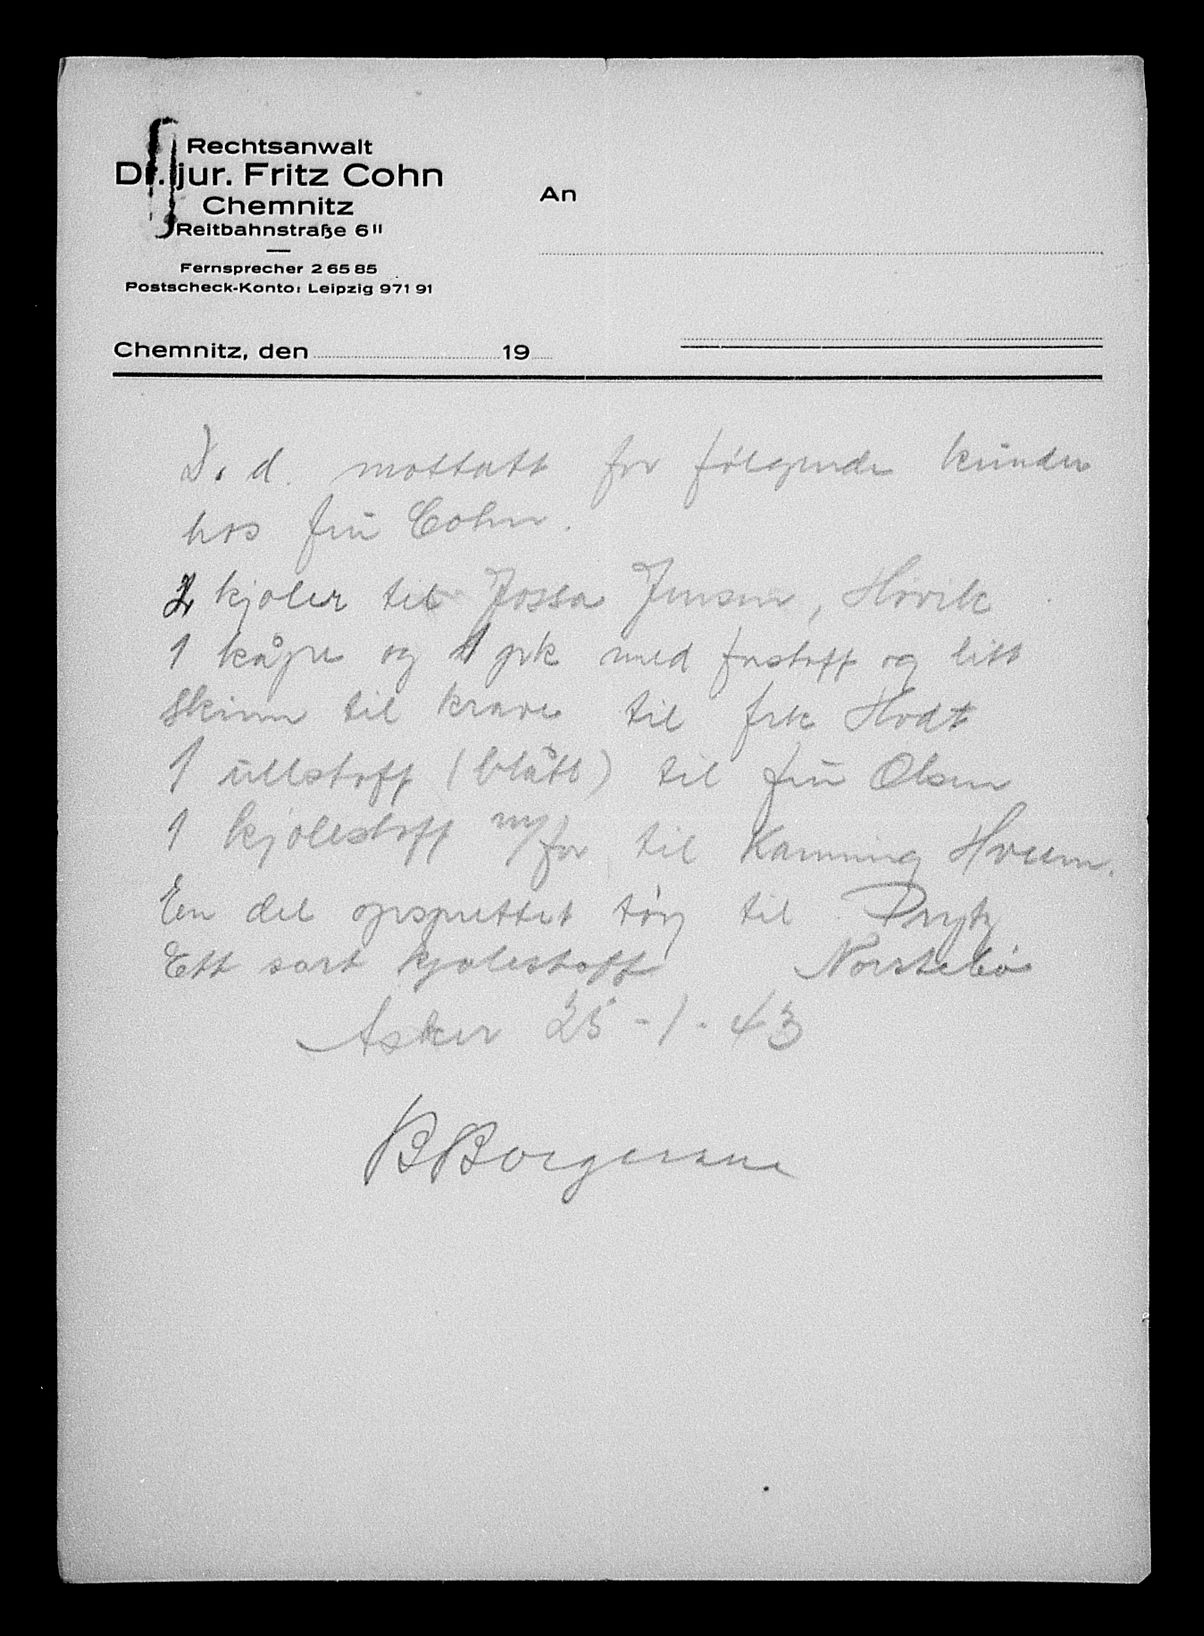 Rechtsanwalt
Dr. jur. Fritz Cohn
Chemnitz
Reitbahnstraße 6II
Fernsprecher 2 65 85
Postscheck-Konto: Leipzig 971 91
An
Chemnitz, den 19
D. d. mottatt for følgende kunder
hos fru Cohn.
2 kjoler til Jossa Jensen, Høvik
1 kåpe og 1 pk med forstoff og litt
skinn til krave til frk Hodt
1 ullstoff (blått) til fru Olsen
1 kjolestoff m/for til Hvum.
En del opsprettet tøy til Prytz
Ett sort kjolestoff Norstebö
Asker 25-1-43
B Borgersen